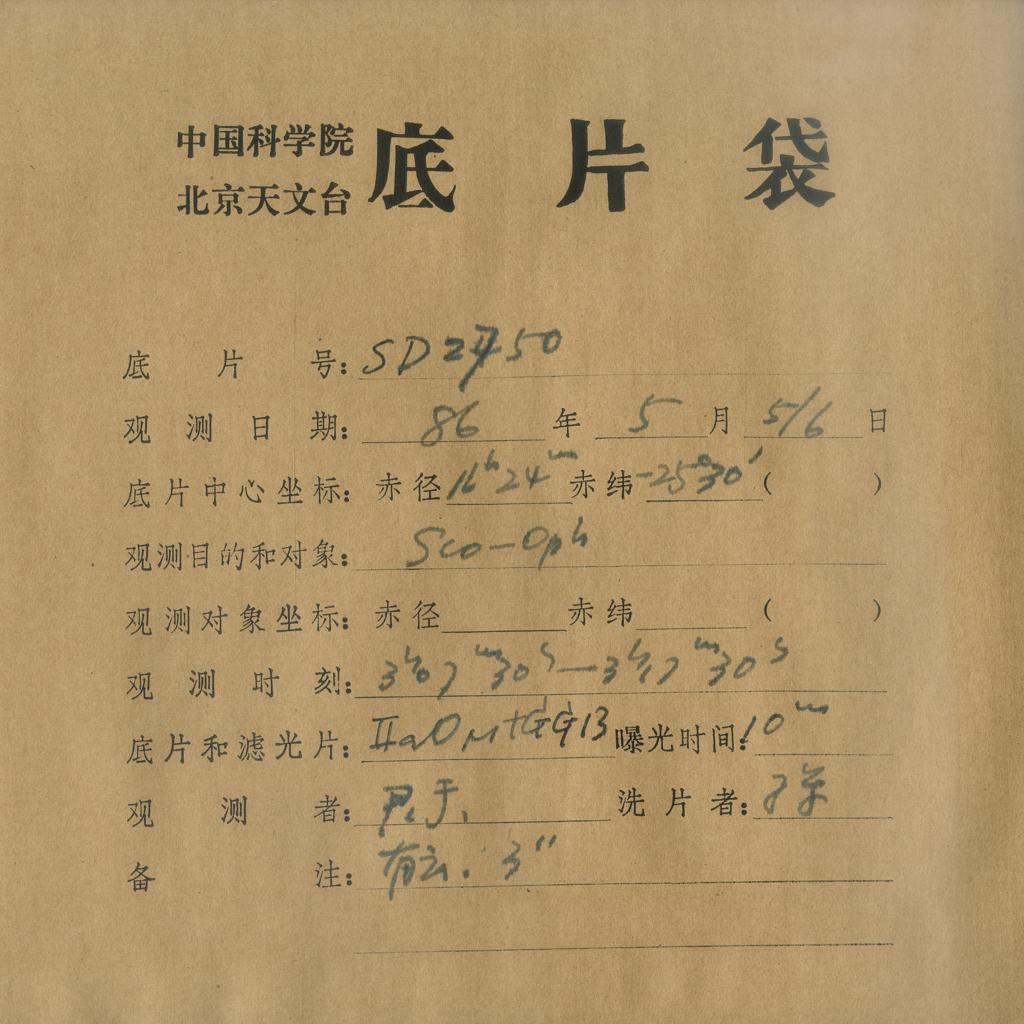 中国科学院
北京天文台
底片袋
底片号: SD2450
观测日期: 86年5月5/6日
底片中心坐标: 赤径16h24m赤纬-25°30′( )
观测目的和对象: Sco-Oph
观测对象坐标: 赤径 赤纬 ( )
观测时刻: 3h07m30s—3h17m30s
底片和滤光片: IIaO+GG13 曝光时间: 10m
观测者: 于. 洗片者:
备注: 有云. 3″